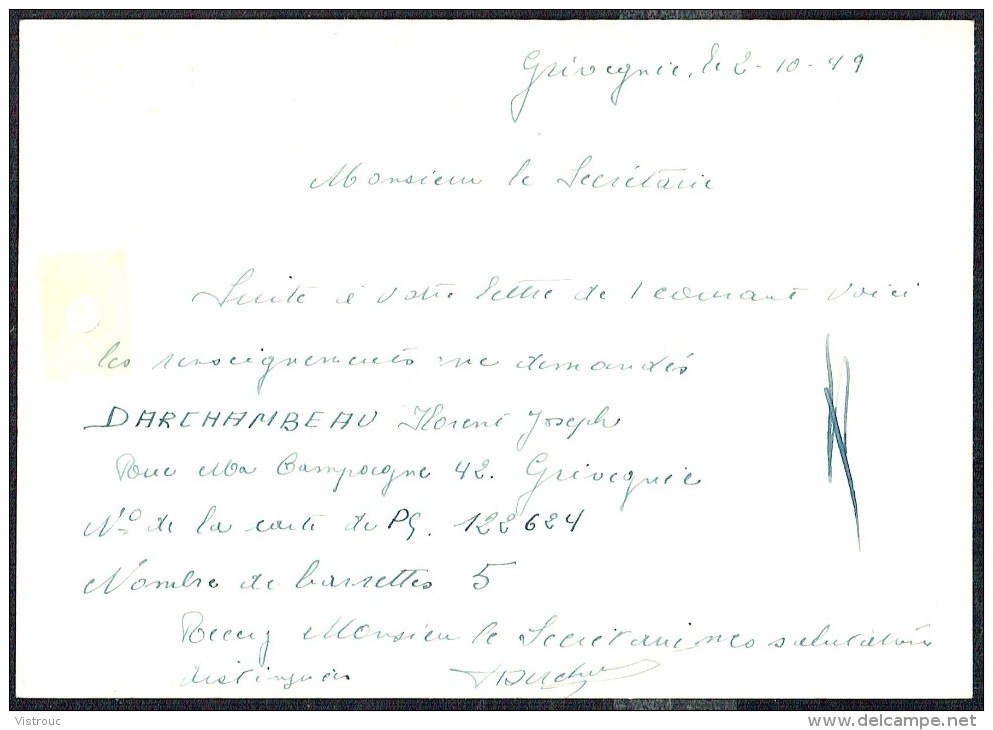 Grivegnée, le 2-10-49
Monsieur le Secrétaire
Suite à votre lettre de 1 courant voici
les renseignements me demandés
DARCHAMBEAU Florent Joseph
Rue Ma Campagne 42. Grivegnée
No de la carte de PG. 122624
Nombre de barrettes 5
Recevez Monsieur le Secrétaire mes salutations
distinguées
Vistrouc
www.delcampe.net